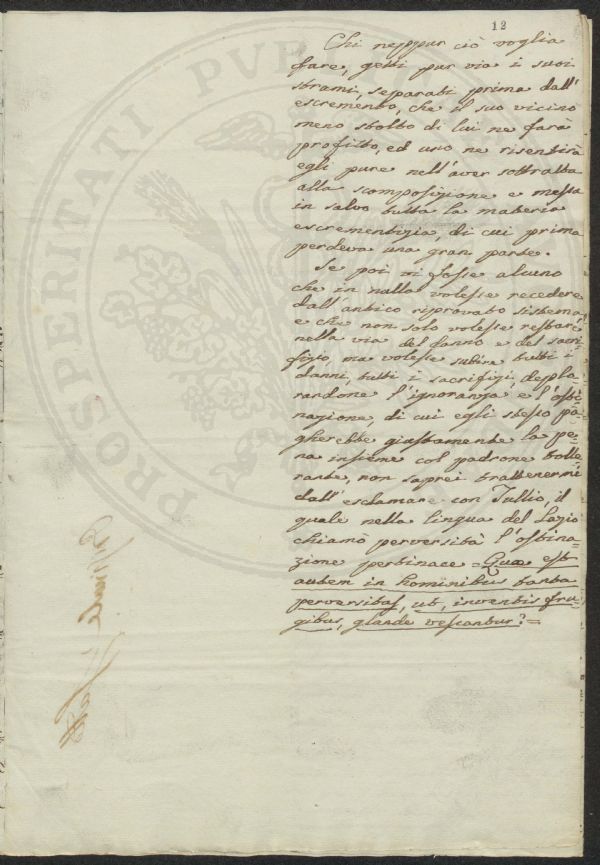 12
Chi neppur ciò voglia
fare, getti pur via i suoi
strami, separati prima dall'
escremento, che il suo vicino
meno stolto di lui ne farà
profitto, ed uno ne risentirà
egli pure nell'aver sottratta
alla scomposizione e messa
in salvo tutta la materia
escrementizia, di cui prima
perdeva una gran parte.
Se poi vi fosse alcuno
che in nulla volesse recedere
dall'antico riprovato sistema,
e che non solo volesse restare
nella via del danno e del sacri-
fizio, ma volesse subire tutti i
danni, tutti i sacrifizj, deplo-
randone l'ignoranza e l'osti-
nazione, di cui egli stesso pa-
gherebbe giustamente la pe-
na insieme col padrone tolle-
rante, non saprei trattenermi
dall'esclamare con Tullio, il
quale nella lingua del Lazio
chiamò perversità l'ostina-
zione pertinace = Quae est
autem in hominibus tanta
perversitas, ut, inventis fru-
gibus, glande vescantur? =
PROSPERITATI PVBLIC